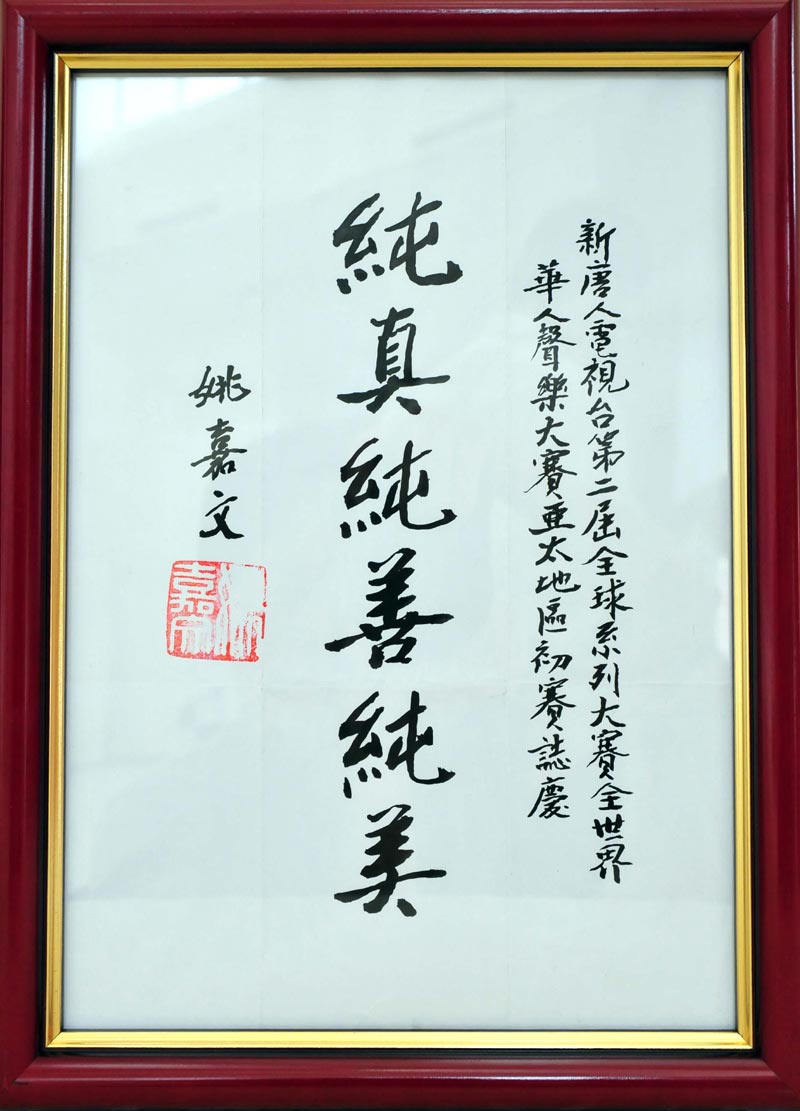 新唐人電視台第二屆全球系列大賽全世界
華人聲樂大賽亜太地區初賽誌慶
純真純善純美
姚嘉文